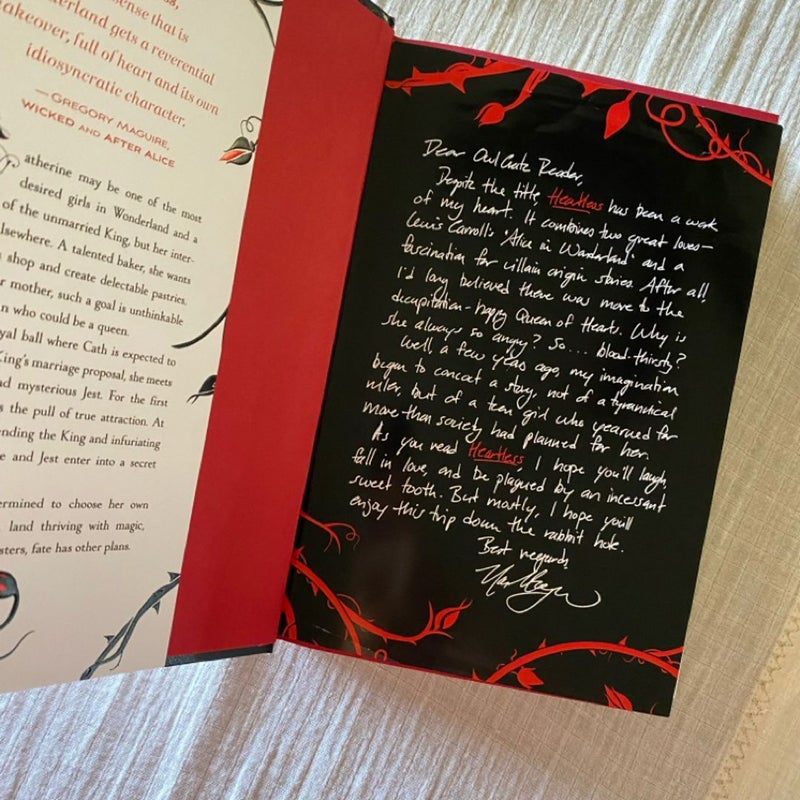 nse that is
derland gets a reverential
akeover, full of heart and its own
idiosyncratic character.
—GREGORY MAGUIRE,
WICKED AND AFTER ALICE
atherine may be one of the most
desired girls in Wonderland and a
of the unmarried King, but her inter-
lsewhere. A talented baker, she wants
shop and create delectable pastries.
r mother, such a goal is unthinkable
n who could be a queen.
yal ball where Cath is expected to
King's marriage proposal, she meets
d mysterious Jest. For the first
s the pull of true attraction. At
nding the King and infuriating
e and Jest enter into a secret
ermined to choose her own
land thriving with magic,
sters, fate has other plans.
Dear OwlCrate Reader,
Despite the title Heartless has been a work
of my heart. It combines two great loves—
Lewis Carroll's 'Alice in Wonderland' and a
fascination for villain origin stories. After all
I'd long believed there was more to the
decapitation-happy Queen of Hearts. Why is
she always so angry? So... blood-thirsty?
Well, a few years ago, my imagination
began to concoct a story, not of a tyrannical
ruler, but of a teen girl who yearned for
more than society had planned for her.
As you read Heartless I hope you'll laugh,
fall in love, and be plagued by an incessant
sweet tooth. But mostly, I hope you'll
enjoy this trip down the rabbit hole.
Best regards,